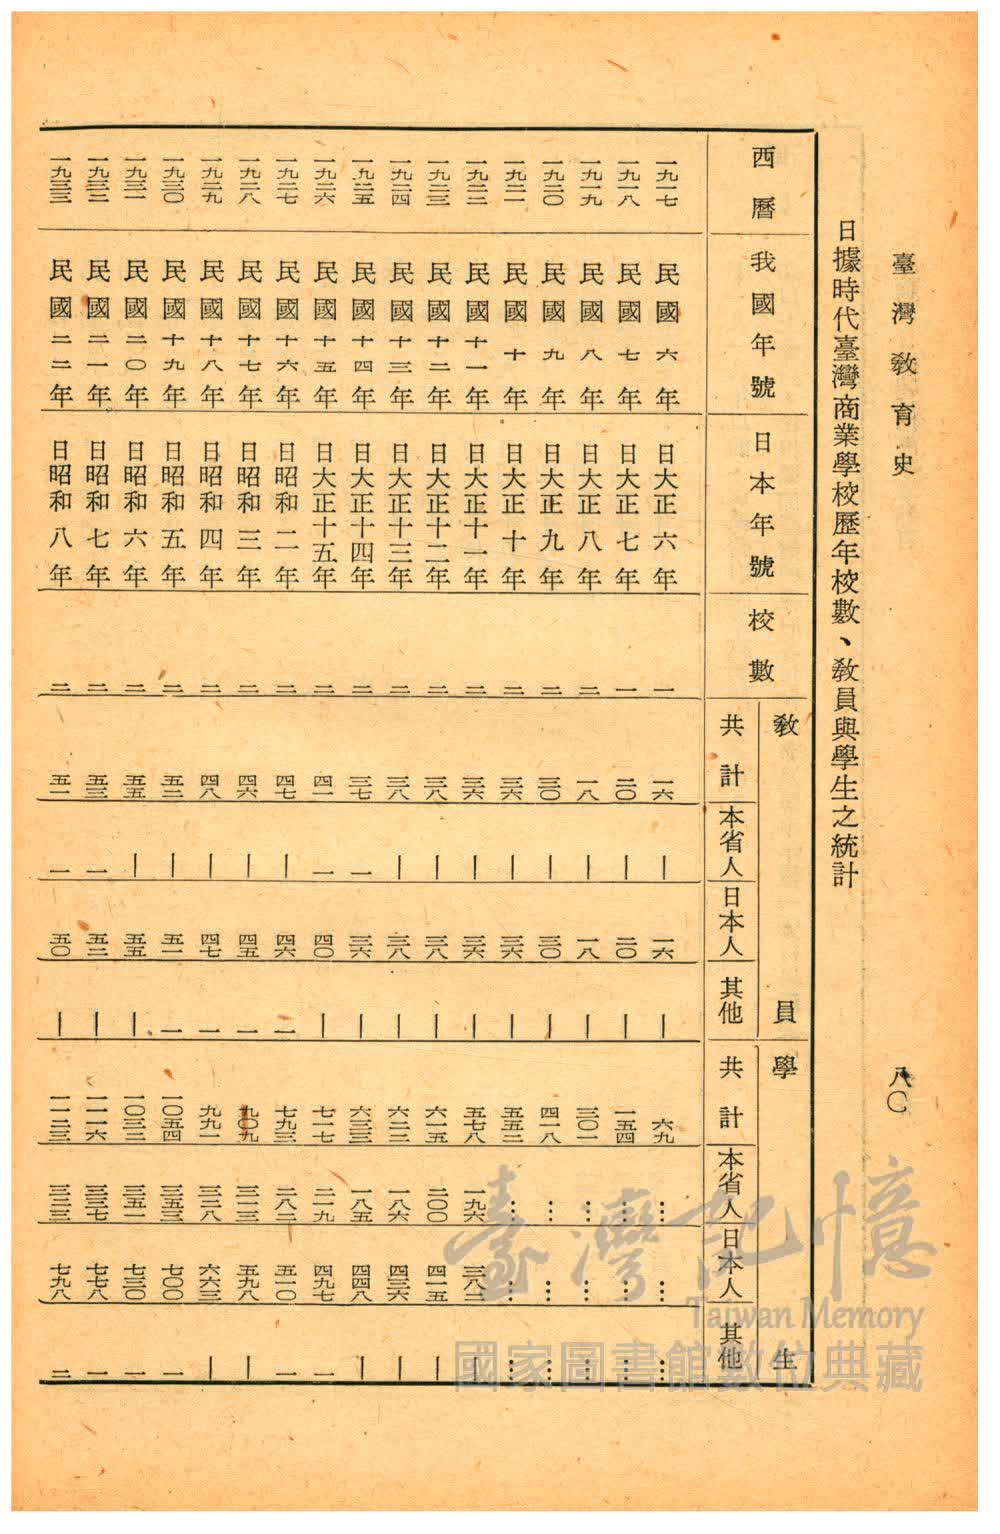 臺灣教育史
八〇
日據時代臺灣商業學校歷年校數、教員與學生之統計
西曆 我國年號 日本年號 校數 教員 學生
共計 本省人 日本人 其他 共計 本省人 日本人 其他
一九一七 民國六年 日大正六年 一 一六 — 一六 — 六九 … … …
一九一八 民國七年 日大正七年 一 二〇 — 二〇 — 一五四 … … …
一九一九 民國八年 日大正八年 二 一八 — 一八 — 三〇一 … … …
一九二〇 民國九年 日大正九年 二 三〇 — 三〇 — 四一八 … … …
一九二一 民國十年 日大正十年 二 三六 — 三六 — 五五二 … … …
一九二二 民國十一年 日大正十一年 二 三六 — 三六 — 五七八 一九六 三八二 —
一九二三 民國十二年 日大正十二年 二 三八 — 三八 — 六一五 二〇〇 四一五 —
一九二四 民國十三年 日大正十三年 二 三八 — 三八 — 六二二 一八六 四三六 —
一九二五 民國十四年 日大正十四年 二 三七 一 三六 — 六三三 一八五 四四八 —
一九二六 民國十五年 日大正十五年 二 四一 一 四〇 — 七一七 二一九 四九七 一
一九二七 民國十六年 日昭和二年 二 四七 — 四六 一 七九三 二八二 五一〇 一
一九二八 民國十七年 日昭和三年 二 四六 — 四五 一 九〇九 三一三 五九八 —
一九二九 民國十八年 日昭和四年 二 四八 — 四七 一 九九一 三二八 六六三 —
一九三〇 民國十九年 日昭和五年 二 五二 — 五一 一 一〇五四 三五三 七〇〇 一
一九三一 民國二〇年 日昭和六年 二 五五 — 五五 — 一〇三二 三五一 七三〇 一
一九三二 民國二一年 日昭和七年 二 五三 一 五二 — 一一一六 三三七 七七八 一
一九三三 民國二二年 日昭和八年 二 五一 一 五〇 — 一一二三 三二三 七九八 二
臺灣記憶
Taiwan Memory
國家圖書館數位典藏